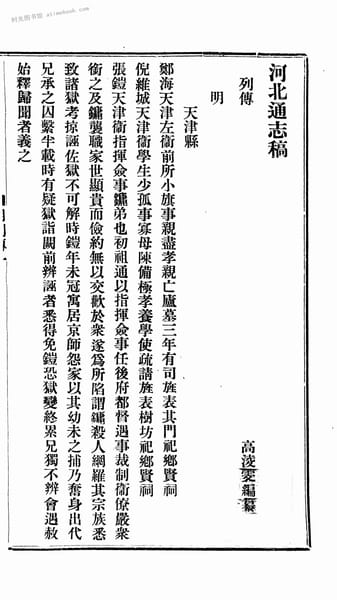 时光图书馆 atimebook.com
河北通志稿
列傳
高淩雯編纂
明
天津縣
鄭海天津左衞前所小旗事親盡孝親亡廬墓三年有司旌表其門祀鄉賢祠
倪維城天津衞學生少孤事寡母陳備極孝養學使疏請旌表樹坊祀鄉賢祠
張鎧天津衞指揮僉事鏞弟也初祖通以指揮僉事任後府都督遇事裁制衞僚嚴衆
銜之及鏞襲職家世顯貴而儉約無以交歡於衆遂爲所陷謂鏞殺人網羅其宗族悉
致諸獄考掠誣佐獄不可解時鎧年未冠寓居京師怨家以其幼未之捕乃奮身出代
兄承之囚繫半載時有疑獄詣闕前辨誣者悉得免鎧恐獄變終累兄獨不辨會遇赦
始釋歸聞者義之